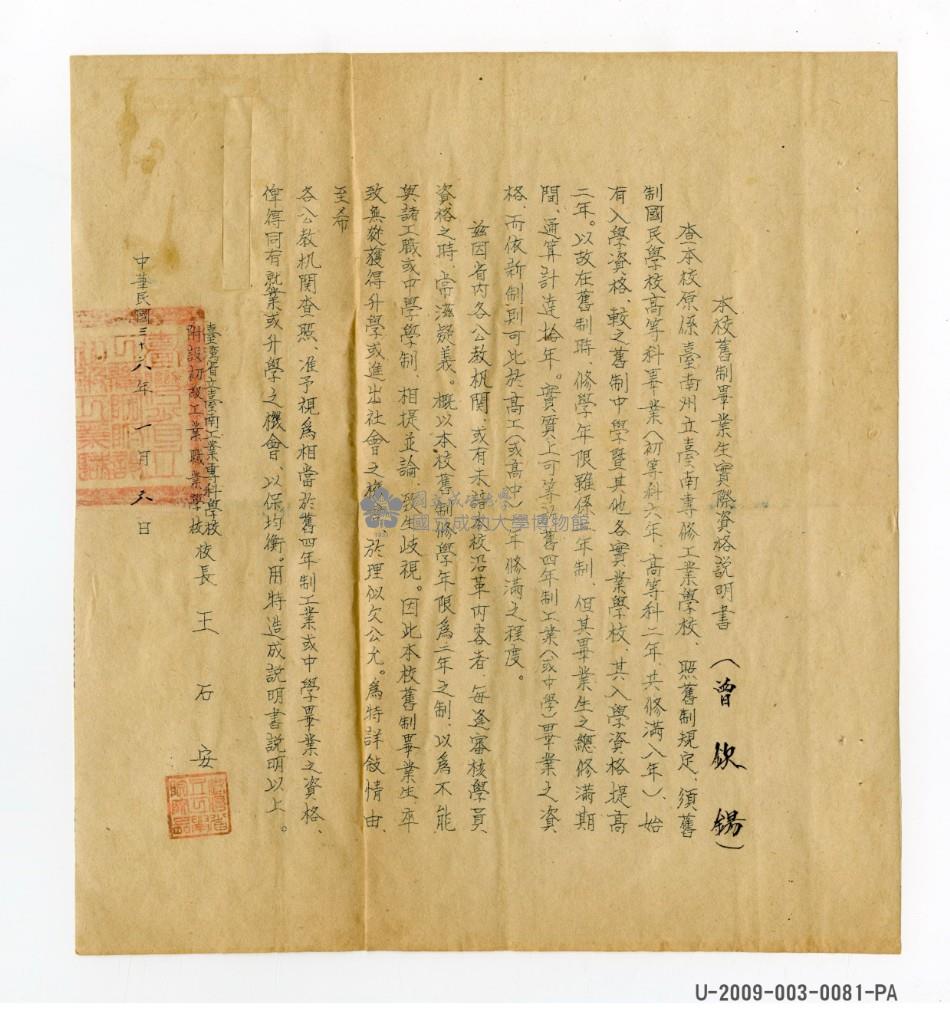 本校舊制畢業生實際資格説明書 (曾欽錫)
查本校原係臺南州立臺南專修工業學校、照舊制規定、須舊
制國民學校高等科畢業(初等科六年、高等科二年、共修滿八年)、始
有入學資格、較之舊制中學暨其他各實業學校、其入學資格提高
二年。以故在舊制時、修學年限雖係二年制、但其畢業生之總修滿期
間、通算計達拾年。實質上可等於舊四年制工業(或中學)畢業之資
格、而依新制則可比於高工(或高中)一年修滿之程度。
茲因省内各公教机関、或有未諳本校沿革内容者、每逢審核學員
資格之時、常滋疑義。概以本校舊制修學年限為二年之制、以為不能
與諸工職或中學學制、相提並論、致生歧視。因此本校舊制畢業生、卒
致無從獲得升學或進出社會之機會、於理似欠公允。為特詳敘情由、
至希
各公教机関查照、准予視為相當於舊四年制工業或中學畢業之資格、
俾得同有就業或升學之機會、以保均衡。用特造成説明書説明以上。
臺灣省立臺南工業專科學校
附設初級工業職業學校 校長 王石安
中華民國三十六年一月 日
國立成功大學
國立成功大學博物館
U-2009-003-0081-PA